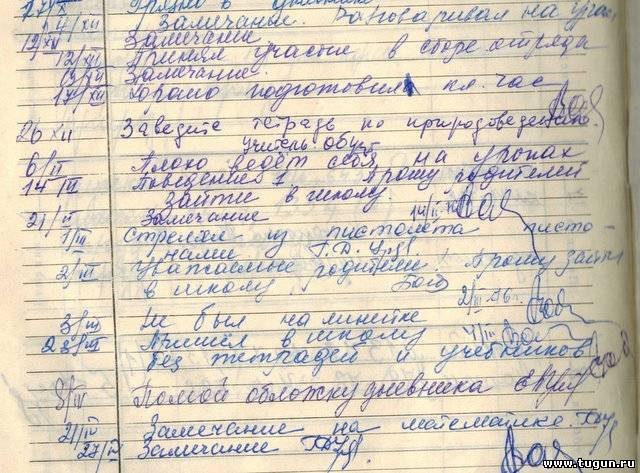 Грязно в дневнике
Замечание. Разговаривал на урок
12/XII Замечание
12/XII Принял участие в сборе отряда
Замечание.
17/XII Хорошо подготовил кл. час
26 XII Заведите тетрадь по природоведению.
учитель
6/II Плохо ведёт себя на уроках
14/II Поведение 1. Прошу родителей
зайти в школу.
21/II Замечание
1/III Стрелял из пистолета писто-
нами
2/III Уважаемые родители! Прошу зайти
в школу.
3/III Не был на линейке
Пришёл в школу
без тетрадей и учебников
8/IV Помой обложку дневника
21/IV Замечание на математике.
27/IV Замечание
www.tugun.ru